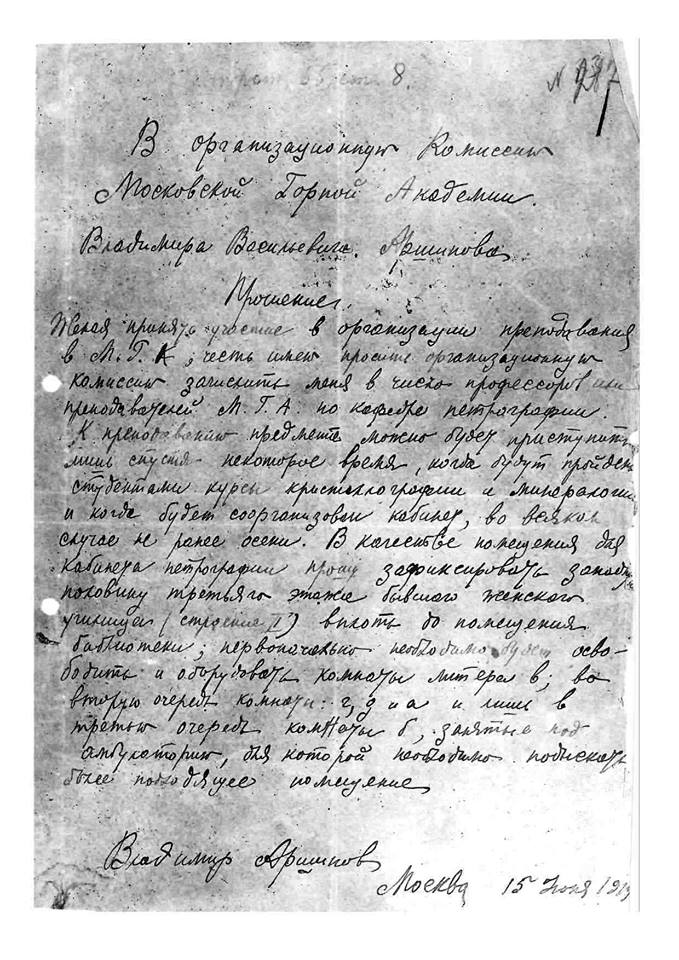 N 937
В организационную Комиссию
Московской Горной Академии.
Владимира Васильевича Аршинова
Прошение.
Желая принять участие в организации преподавания
в М. Г. А, честь имею просить организационную
комиссию зачислить меня в число профессоров или
преподавателей М. Г. А. по кафедре петрографии.
К преподаванию предмета можно будет приступить
лишь спустя некоторое время, когда будут пройдены
студентами курсы кристаллографии и минералогии
и когда будет соорганизован кабинет, во всяком
случае не ранее осени. В качестве помещения для
кабинета петрографии прошу зафиксировать западную
половину третьяго этажа бывшего женского
училища (строение II) вплоть до помещения
библиотеки; первоначально необходимо будет осво-
бодить и оборудовать комнаты литера в; во
вторую очередь комнаты: г, д и а и лишь в
третью очередь комнаты б, занятые под
амбулаторию, для которой необходимо подыскать
более подходящее помещение
Владимир Аршинов
Москва 15 Июня 1919